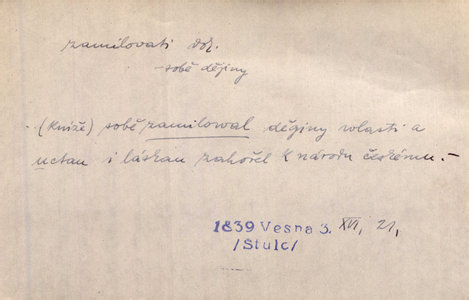 zamilovati dok.
-sobě dějiny
- (Kníže) sobě zamilowal děginy wlasti a
uctau i láskau zahořel k národu českému.-
1839 Vesna 3. XVI, 21,
/Štulc/